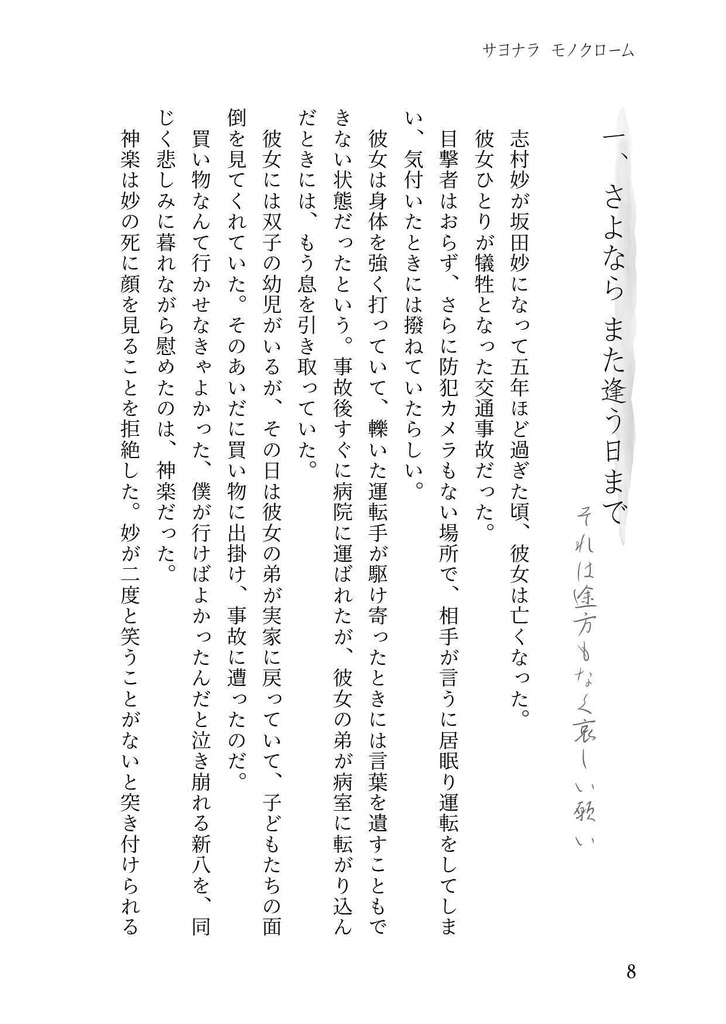 サヨナラ モノクローム
一、さよなら また逢う日まで
それは途方もなく哀しい願い
志村妙が坂田妙になって五年ほど過ぎた頃、彼女は亡くなった。
彼女ひとりが犠牲となった交通事故だった。
目撃者はおらず、さらに防犯カメラもない場所で、相手が言うに居眠り運転をしてしま
い、気付いたときには撥ねていたらしい。
彼女は身体を強く打っていて、轢いた運転手が駆け寄ったときには言葉を遺すこともで
きない状態だったという。事故後すぐに病院に運ばれたが、彼女の弟が病室に転がり込ん
だときには、もう息を引き取っていた。
彼女には双子の幼児がいるが、その日は彼女の弟が実家に戻っていて、子どもたちの面
倒を見てくれていた。そのあいだに買い物に出掛け、事故に遭ったのだ。
買い物なんて行かせなきゃよかった、僕が行けばよかったんだと泣き崩れる新八を、同
じく悲しみに暮れながら慰めたのは、神楽だった。
神楽は妙の死に顔を見ることを拒絶した。妙が二度と笑うことがないと突き付けられる
8